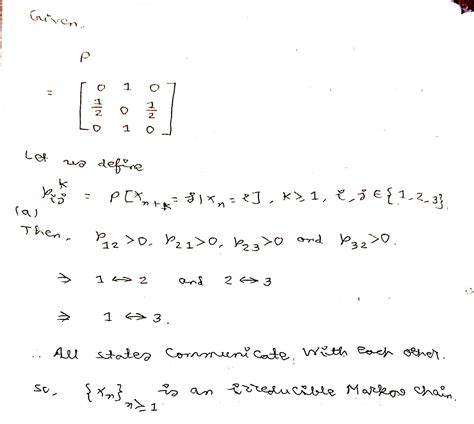 Given.
P
= [ 0 1 0
1/2 0 1/2
0 1 0 ]
Let us define
p_ij^k = P[X_n+k = j | X_n = i], k ≥ 1, i, j ∈ {1-2-3}.
(a)
Then, p_12 > 0, p_21 > 0, p_23 > 0 and p_32 > 0.
⇒ 1 ↔ 2 and 2 ↔ 3
⇒ 1 ↔ 3.
∴ All states communicate with each other.
so, {X_n}_n≥1 is an irreducible Markov chain.